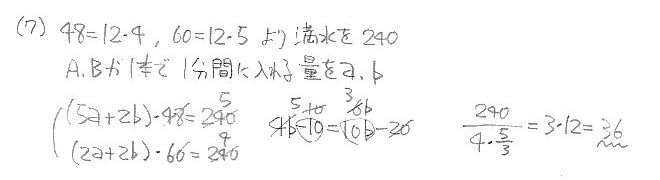 (7) 48=12・4, 60=12・5 より 満水を 240
A.Bが1本で 1分間に入れる量をa.b
(5a+2b)・48=240 5
(2a+2b)・60=240 4
240/(4・5/3)=3・12=36